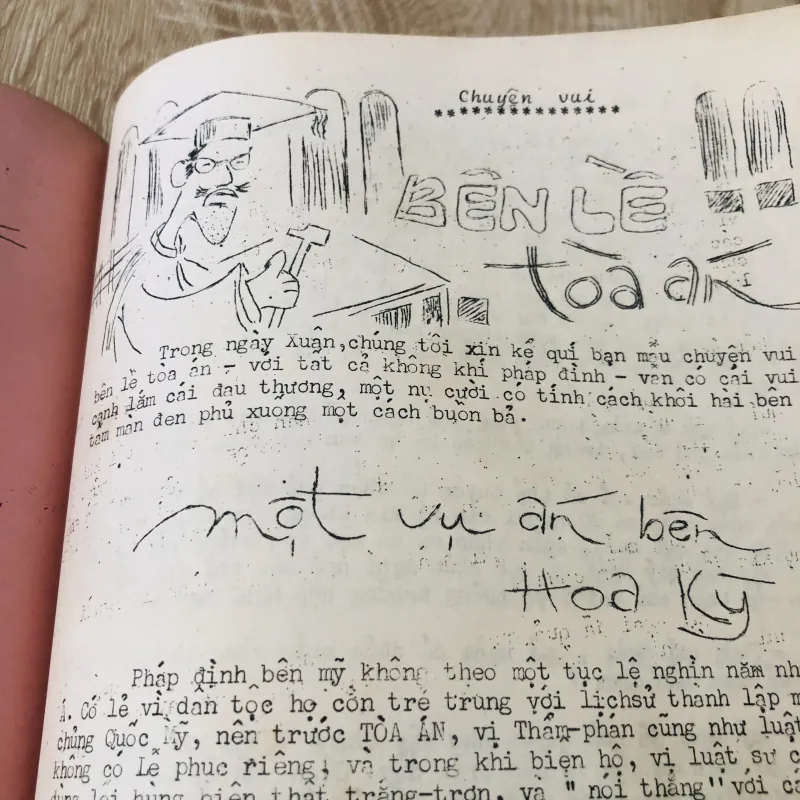 Chuyện vui
******************
BÊN LỀ
tòa án
Trong ngày Xuân, chúng tôi xin kể quí bạn mẩu chuyện vui
bên lề tòa án - với tất cả không khí pháp đình - vẫn có cái vui
cạnh lắm cái đau thương, một nụ cười có tính cách khôi hài bên
tấm màn đen phủ xuống một cách buồn bả.
một vụ án bên
Hoa Kỳ
Pháp đình bên mỹ không theo một tục lệ nghìn năm
Á. Có lẻ vì dân tộc họ còn trẻ trung với lịchsử thành lập
chủng Quốc Mỹ, nên trước TÒA ÁN, vị Thẩm-phán cũng như luật
không có Lễ phục riêng; và trong khi biện hộ, vị luật sư
dùng lối hùng biện thật trắng-trợn, và " nói thẳng" với